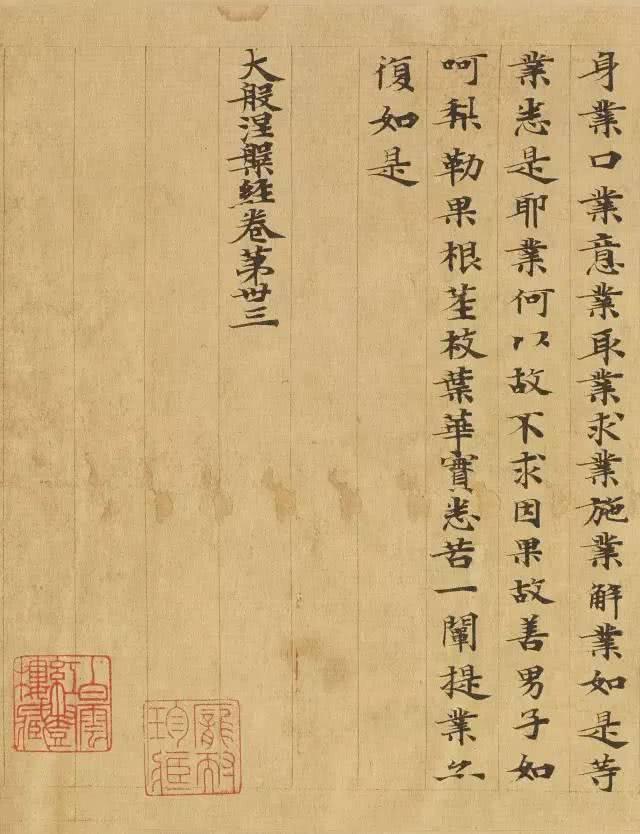 身業口業意業取業求業施業解業如是等
業悉是耶業何以故不求因果故善男子如
呵梨勒果根莖枝葉華實悉苦一闡提業亦
復如是
大般涅槃經卷第卅三